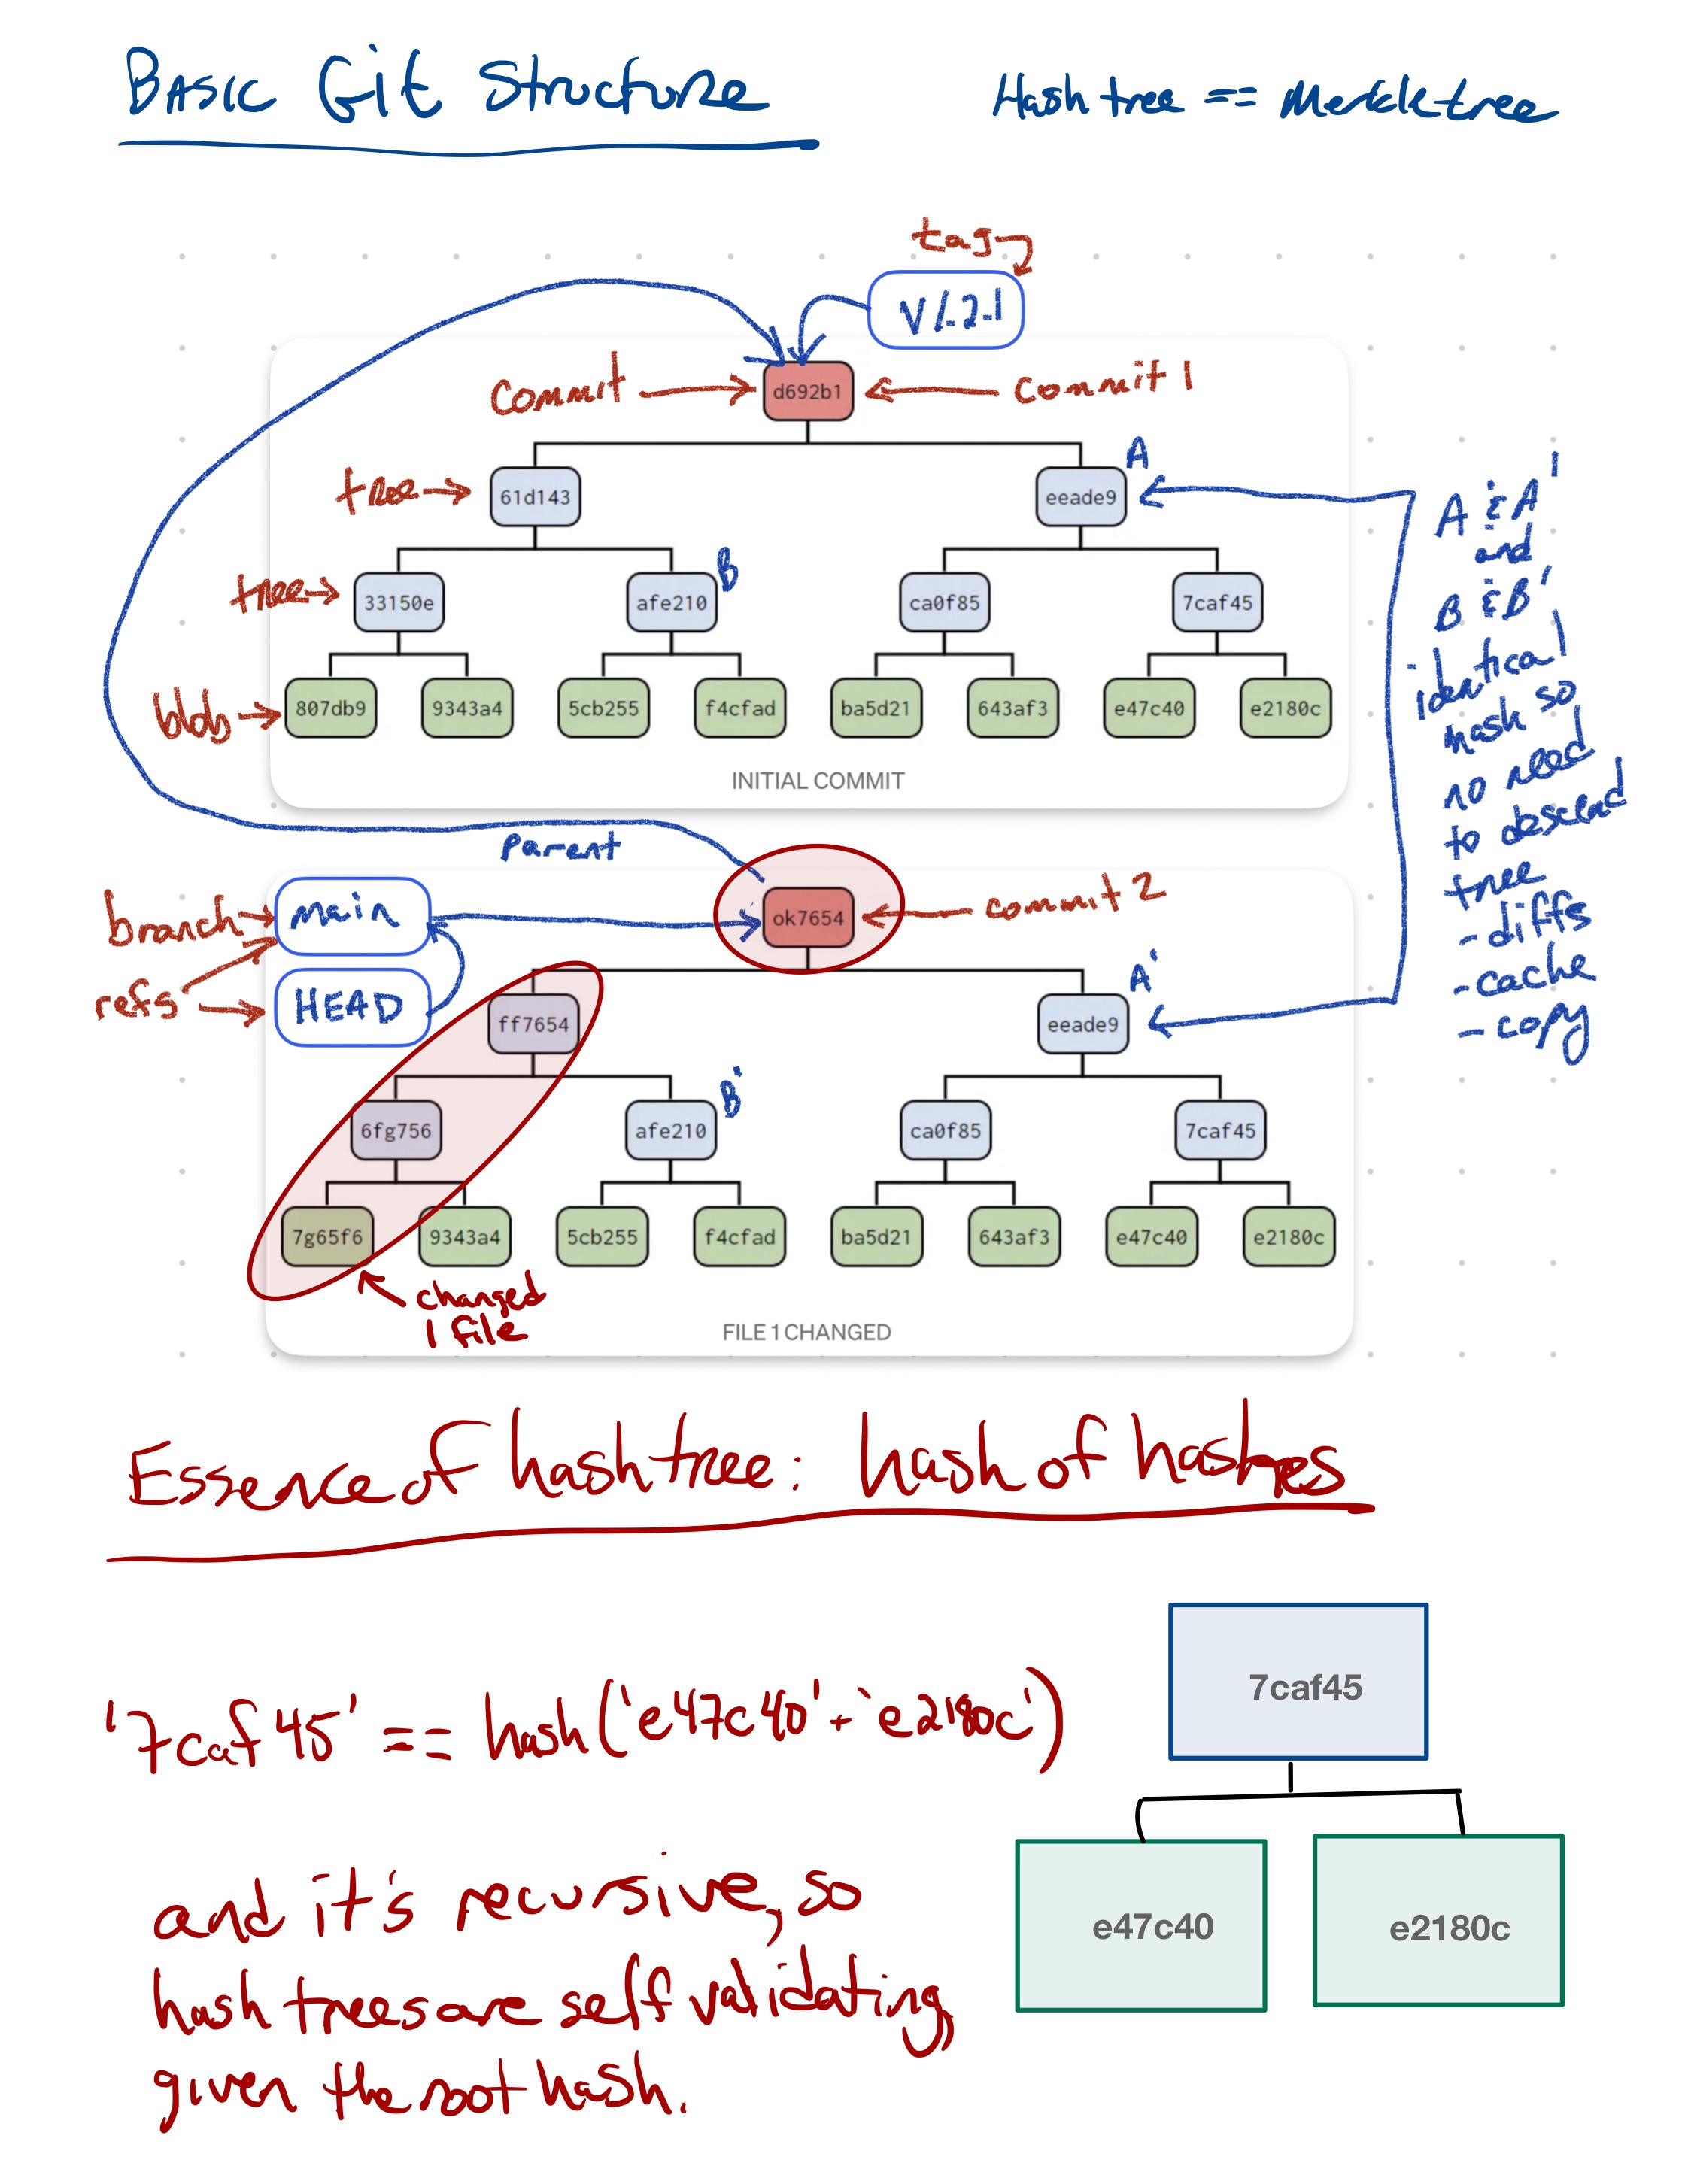 BASIC Git Structure
Hash tree == Merkle tree
tag
V1.2.1
commit
d692b1
commit 1
tree
61d143
A
eeade9
tree
33150e
afe210
B
ca0f85
7caf45
blob
807db9
9343a4
5cb255
f4cfad
ba5d21
643af3
e47c40
e2180c
INITIAL COMMIT
A & A'
and
B & B'
identical
hash so
no need
to descend
tree
- diffs
- cache
- copy
Parent
branch
main
ok7654
commit 2
refs
HEAD
ff7654
A'
eeade9
6fg756
afe210
B'
ca0f85
7caf45
7g65f6
9343a4
5cb255
f4cfad
ba5d21
643af3
e47c40
e2180c
changed
1 file
FILE 1 CHANGED
Essence of hash tree: hash of hashes
'7caf45' == hash('e47c40' + 'e2180c')
7caf45
e47c40
e2180c
and it's recursive, so
hash trees are self validating,
given the root hash.